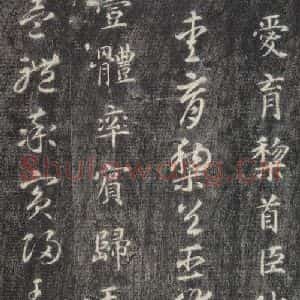 愛育黎首臣伏
愛育黎首臣
壹體率賓歸王
壹體率賓歸王
Shufawang.Cn